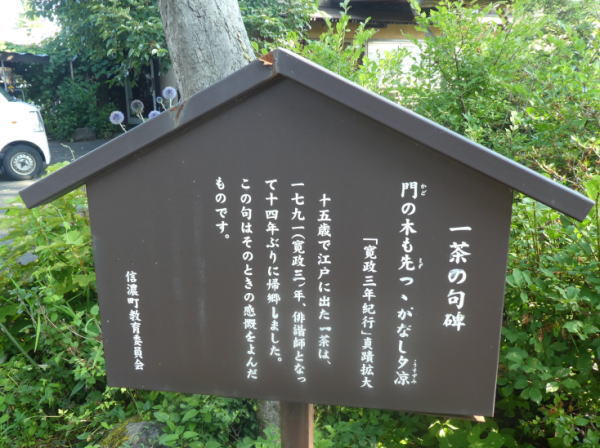 一茶の句碑
門の木も先つゝがなし夕凉
「寛政三年紀行」真蹟拡大
十五歳で江戸に出た一茶は、
一七九一(寛政三)年、俳諧師となっ
て十四年ぶりに帰郷しました。
この句はそのときの感慨をよんだ
ものです。
信濃町教育委員会